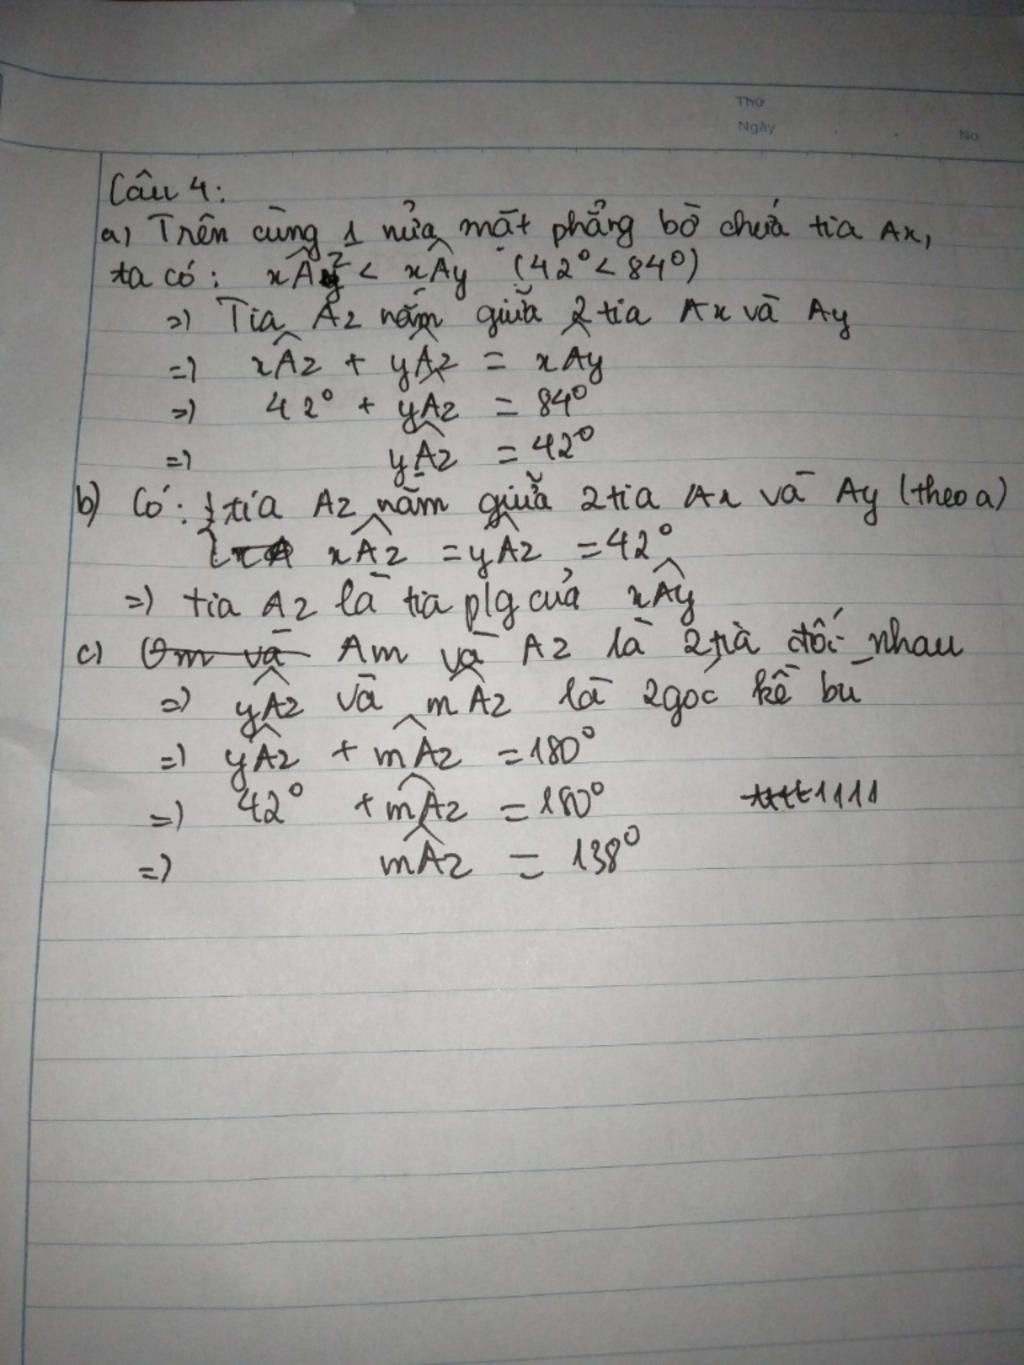 Thứ
Ngày . . No
Câu 4:
a) Trên cùng 1 nửa mặt phẳng bờ chứa tia Ax,
ta có: xÂz < xÂy (42° < 84°)
=) Tia Az nằm giữa 2 tia Ax và Ay
=) xÂz + yÂz = xÂy
=) 42° + yÂz = 84°
=) yÂz = 42°
b) Có: { tia Az nằm giữa 2 tia Ax và Ay (theo a)
xÂz = yÂz = 42°
=) tia Az là tia p/g của xÂy
c) Om và Am và Az là 2 tia đối nhau
=) yÂz và mÂz là 2 góc kề bù
=) yÂz + mÂz = 180°
=) 42° + mÂz = 180° 1111
=) mÂz = 138°